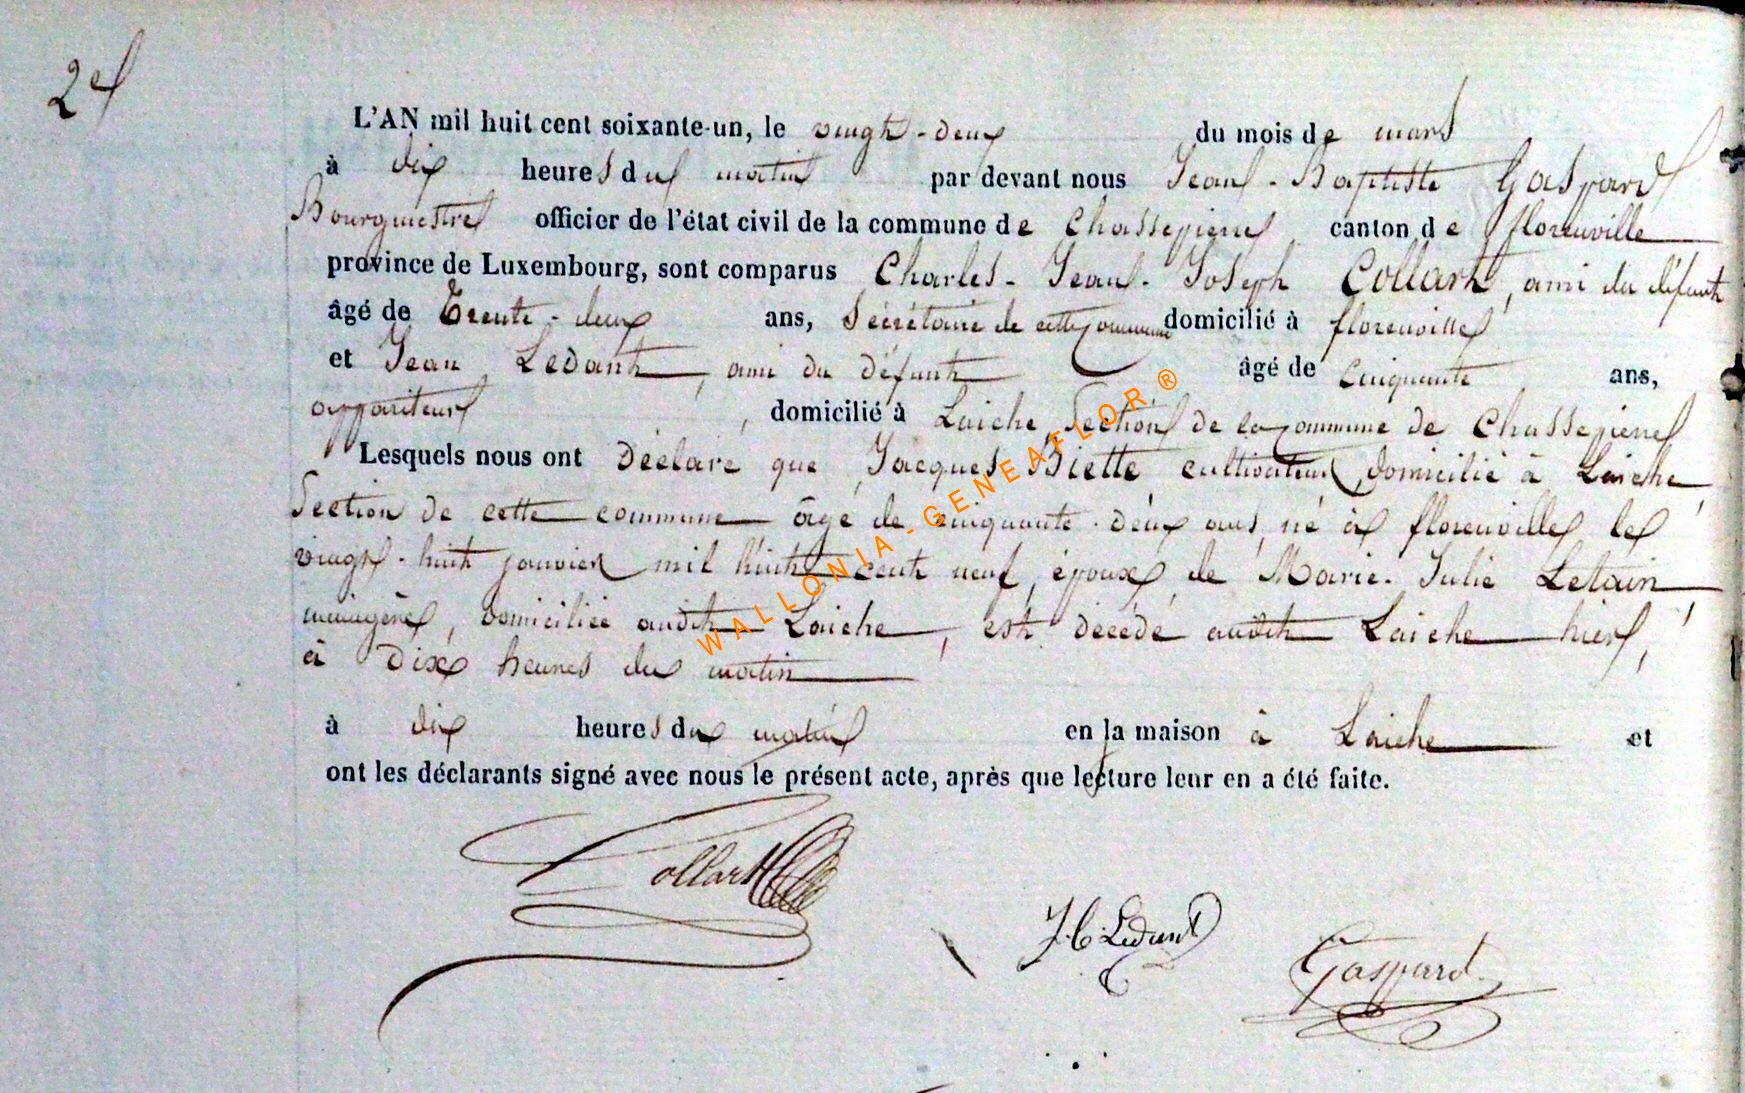 2e
L'AN mil huit cent soixante-un, le vingt-deux du mois de mars
à dix heures du matin par devant nous Jean-Baptiste Gaspard
Bourgmestre officier de l'état civil de la commune de Chassepierre canton de florenville
province de Luxembourg, sont comparus Charles-Jean-Joseph Collart, ami du défunt
âgé de Trente-deux ans, Sécrétaire de cette commune domicilié à florenville
et Jean Ledant, ami du défunt âgé de cinquante ans,
appariteur, domicilié à Laiche, Section de la commune de Chassepierre
Lesquels nous ont Déclaré que Jacques Biette cultivateur, domicilié à Laiche,
Section de cette commune âgé de cinquante-deux ans, né à florenville le
vingt-huit janvier mil huit cent neuf, époux de Marie-Julie Letain,
ménagère, domiciliée audit Laiche, est décédé audit Laiche hier,
à Dix heures du matin
à dix heures du matin en la maison à Laiche et
ont les déclarants signé avec nous le présent acte, après que lecture leur en a été faite.
Collart
J. C. Ledant
Gaspard
WALLONIA-GENEAFLOR ®